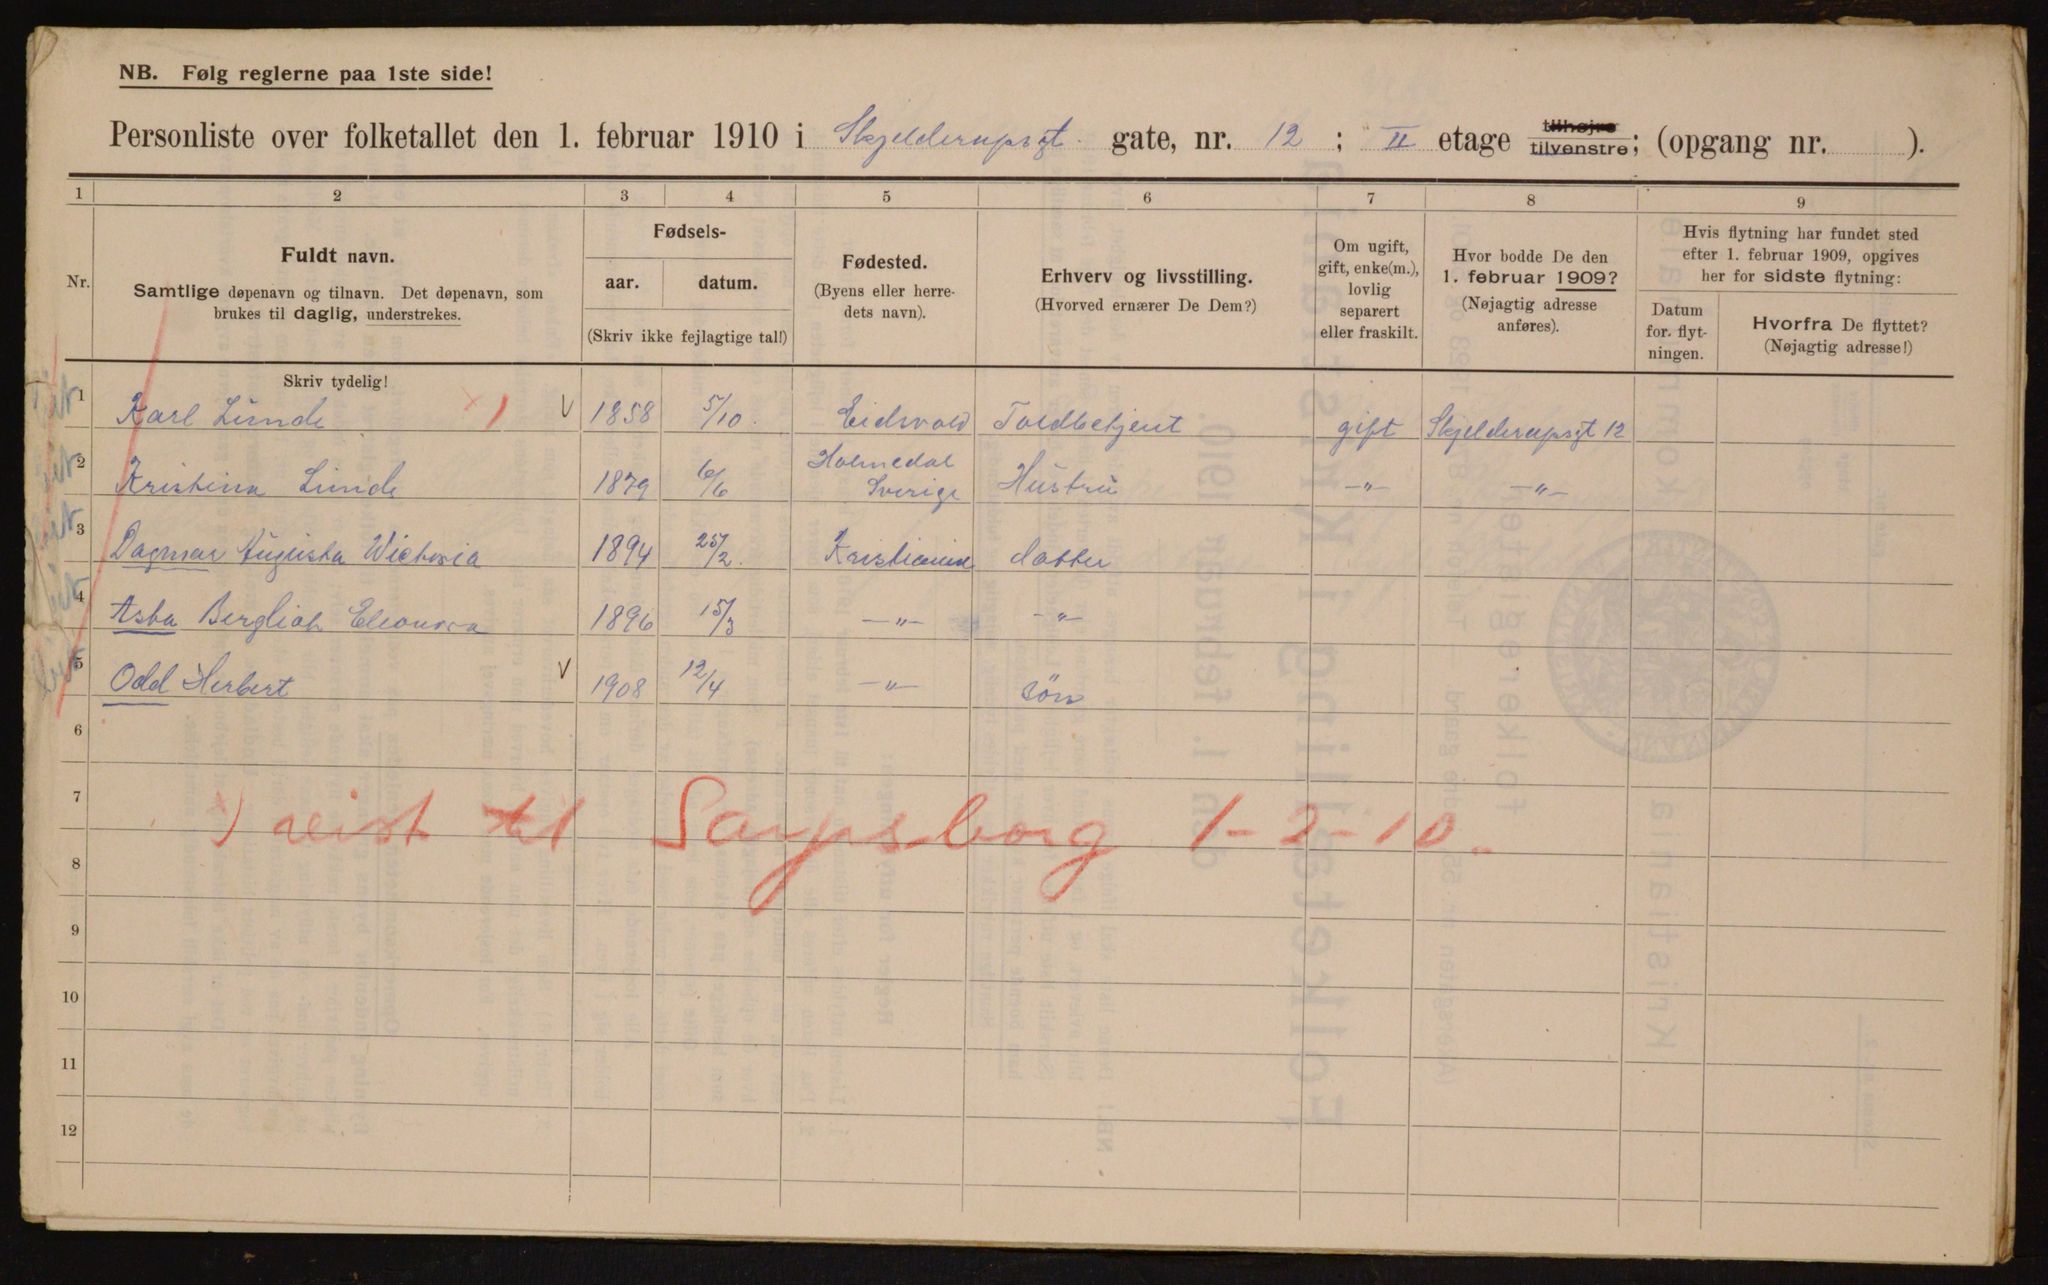 NB. Følg reglerne paa 1ste side!
Personliste over folketallet den 1. februar 1910 i Skjelderupsgt. gate, nr. 12 ; II etage tilhøjre tilvenstre; (opgang nr. ).
1 2 3 4 5 6 7 8 9
Nr.
Fuldt navn.
Samtlige døpenavn og tilnavn. Det døpenavn, som
brukes til daglig, understrekes.
Fødsels-
aar. datum.
(Skriv ikke fejlagtige tal!)
Fødested.
(Byens eller herre-
dets navn).
Erhverv og livsstilling.
(Hvorved ernærer De Dem?)
Om ugift,
gift, enke(m.),
lovlig
separert
eller fraskilt.
Hvor bodde De den
1. februar 1909?
(Nøjagtig adresse
anføres).
Hvis flytning har fundet sted
efter 1. februar 1909, opgives
her for sidste flytning:
Datum
for. flyt-
ningen.
Hvorfra De flyttet?
(Nøjagtig adresse!)
Skriv tydelig!
1 Karl Lunde x) V 1858 5/10. Eidsvold Toldbetjent gift Skjelderupsgt 12
2 Kristina Lunde 1879 6/6 Holmedal Sverige Hustru -"- -"-
3 Dagmar Augusta Wictoria 1894 25/2. Kristiania datter
4 Asta Bergliot Eleonora 1896 15/3 -"- -"-
5 Odd Herbert V 1908 12/4 -"- søn
6
7
x) reist til Sarpsborg 1-2-10.
8
9
10
11
12